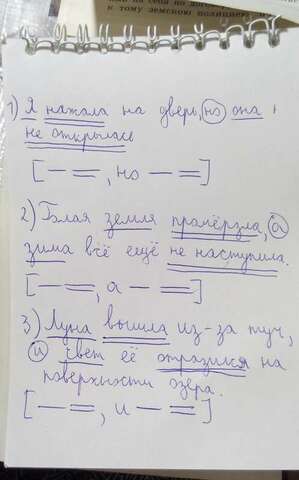 на себя по
к тому земскою полициею
1) Я нажала на дверь, но она
не открылась
[— =, но — =]
2) Голая земля промёрзла, а
зима всё ещё не наступила.
[— =, а — =]
3) Луна вышла из-за туч,
и свет её отразился на
поверхности озера.
[— =, и — =]